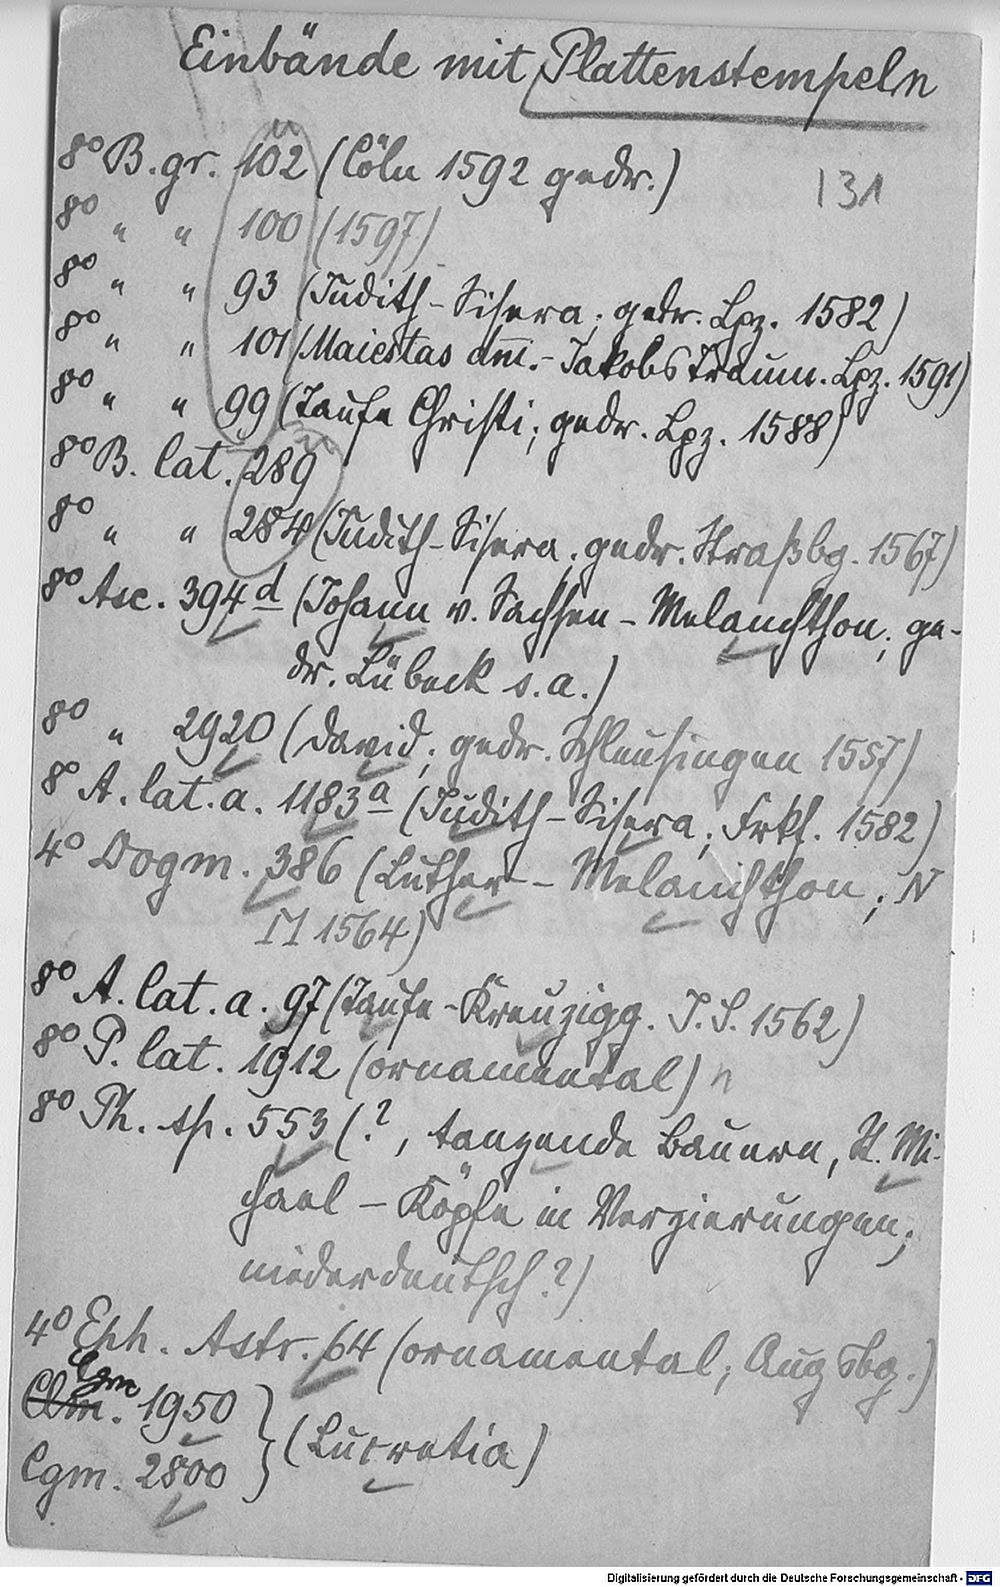 Einbände mit Plattenstempeln
8° B. gr. 102 (Cöln 1592 gedr.)
131
8° " " 100 (1597)
8° " " 93 (Judith-Sisera; gedr. Lpz. 1582)
8° " " 101 (Maiestas dni.- Jakobs Traum. Lpz. 1591)
8° " " 99 (Taufe Christi; gedr. Lpz. 1588)
8° B. lat. 289
8° " " 284 (Judith-Sisera; gedr. Straßbg. 1567)
8° Asc. 394 d (Johann v. Sachsen - Melanchthon; ge-
dr. Lübeck s.a.)
8° " 2920 (David; gedr. Schleusingen 1557)
8° A. lat. a. 1183 a (Judith-Sisera; Frkf. 1582)
4° Dogm. 386 (Luther - Melanchthon; N
M 1564)
8° A. lat. a. 97 (Taufe-Kreuzigg. J. S. 1562)
8° P. lat. 1912 (ornamental) n
8° Ph. sp. 553 (?, tanzende Bauern, St. Mi-
chael - Köpfe in Verzierungen;
niederdeutsch?)
4° Eph. Astr. 64 (ornamental; Augsbg.)
Cgm
Clm. 1950
(Lucretia)
Cgm. 2800
Digitalisierung gefördert durch die Deutsche Forschungsgemeinschaft - DFG